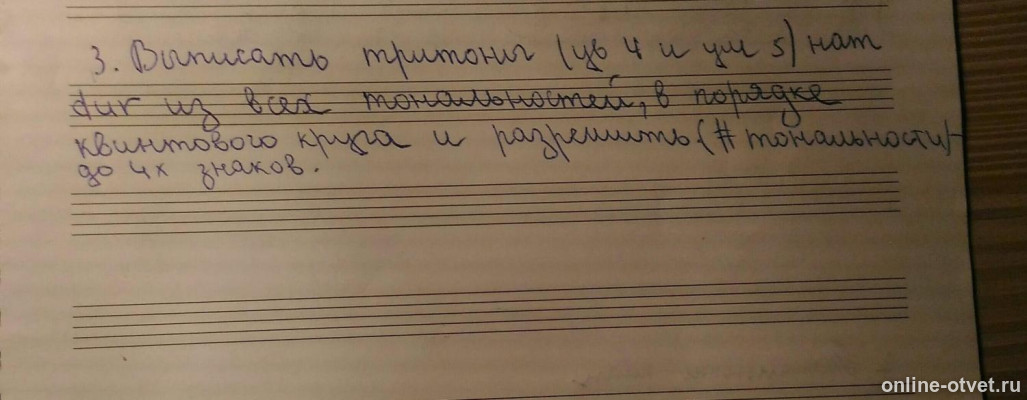 3. Выписать тритоны (ув 4 и ум 5) нат
dur из всех тональностей, в порядке
квинтового круга и разрешить (# тональности)
до 4х знаков.
online-otvet.ru